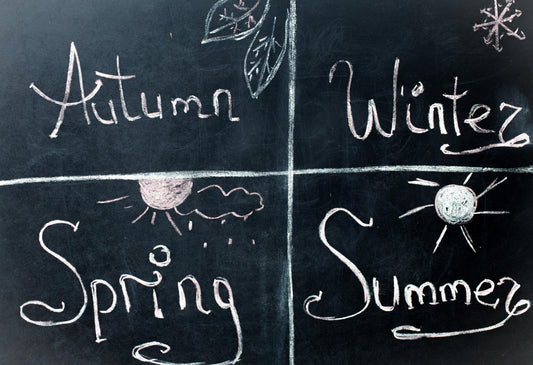 Autumn
Winter
Spring
Summer